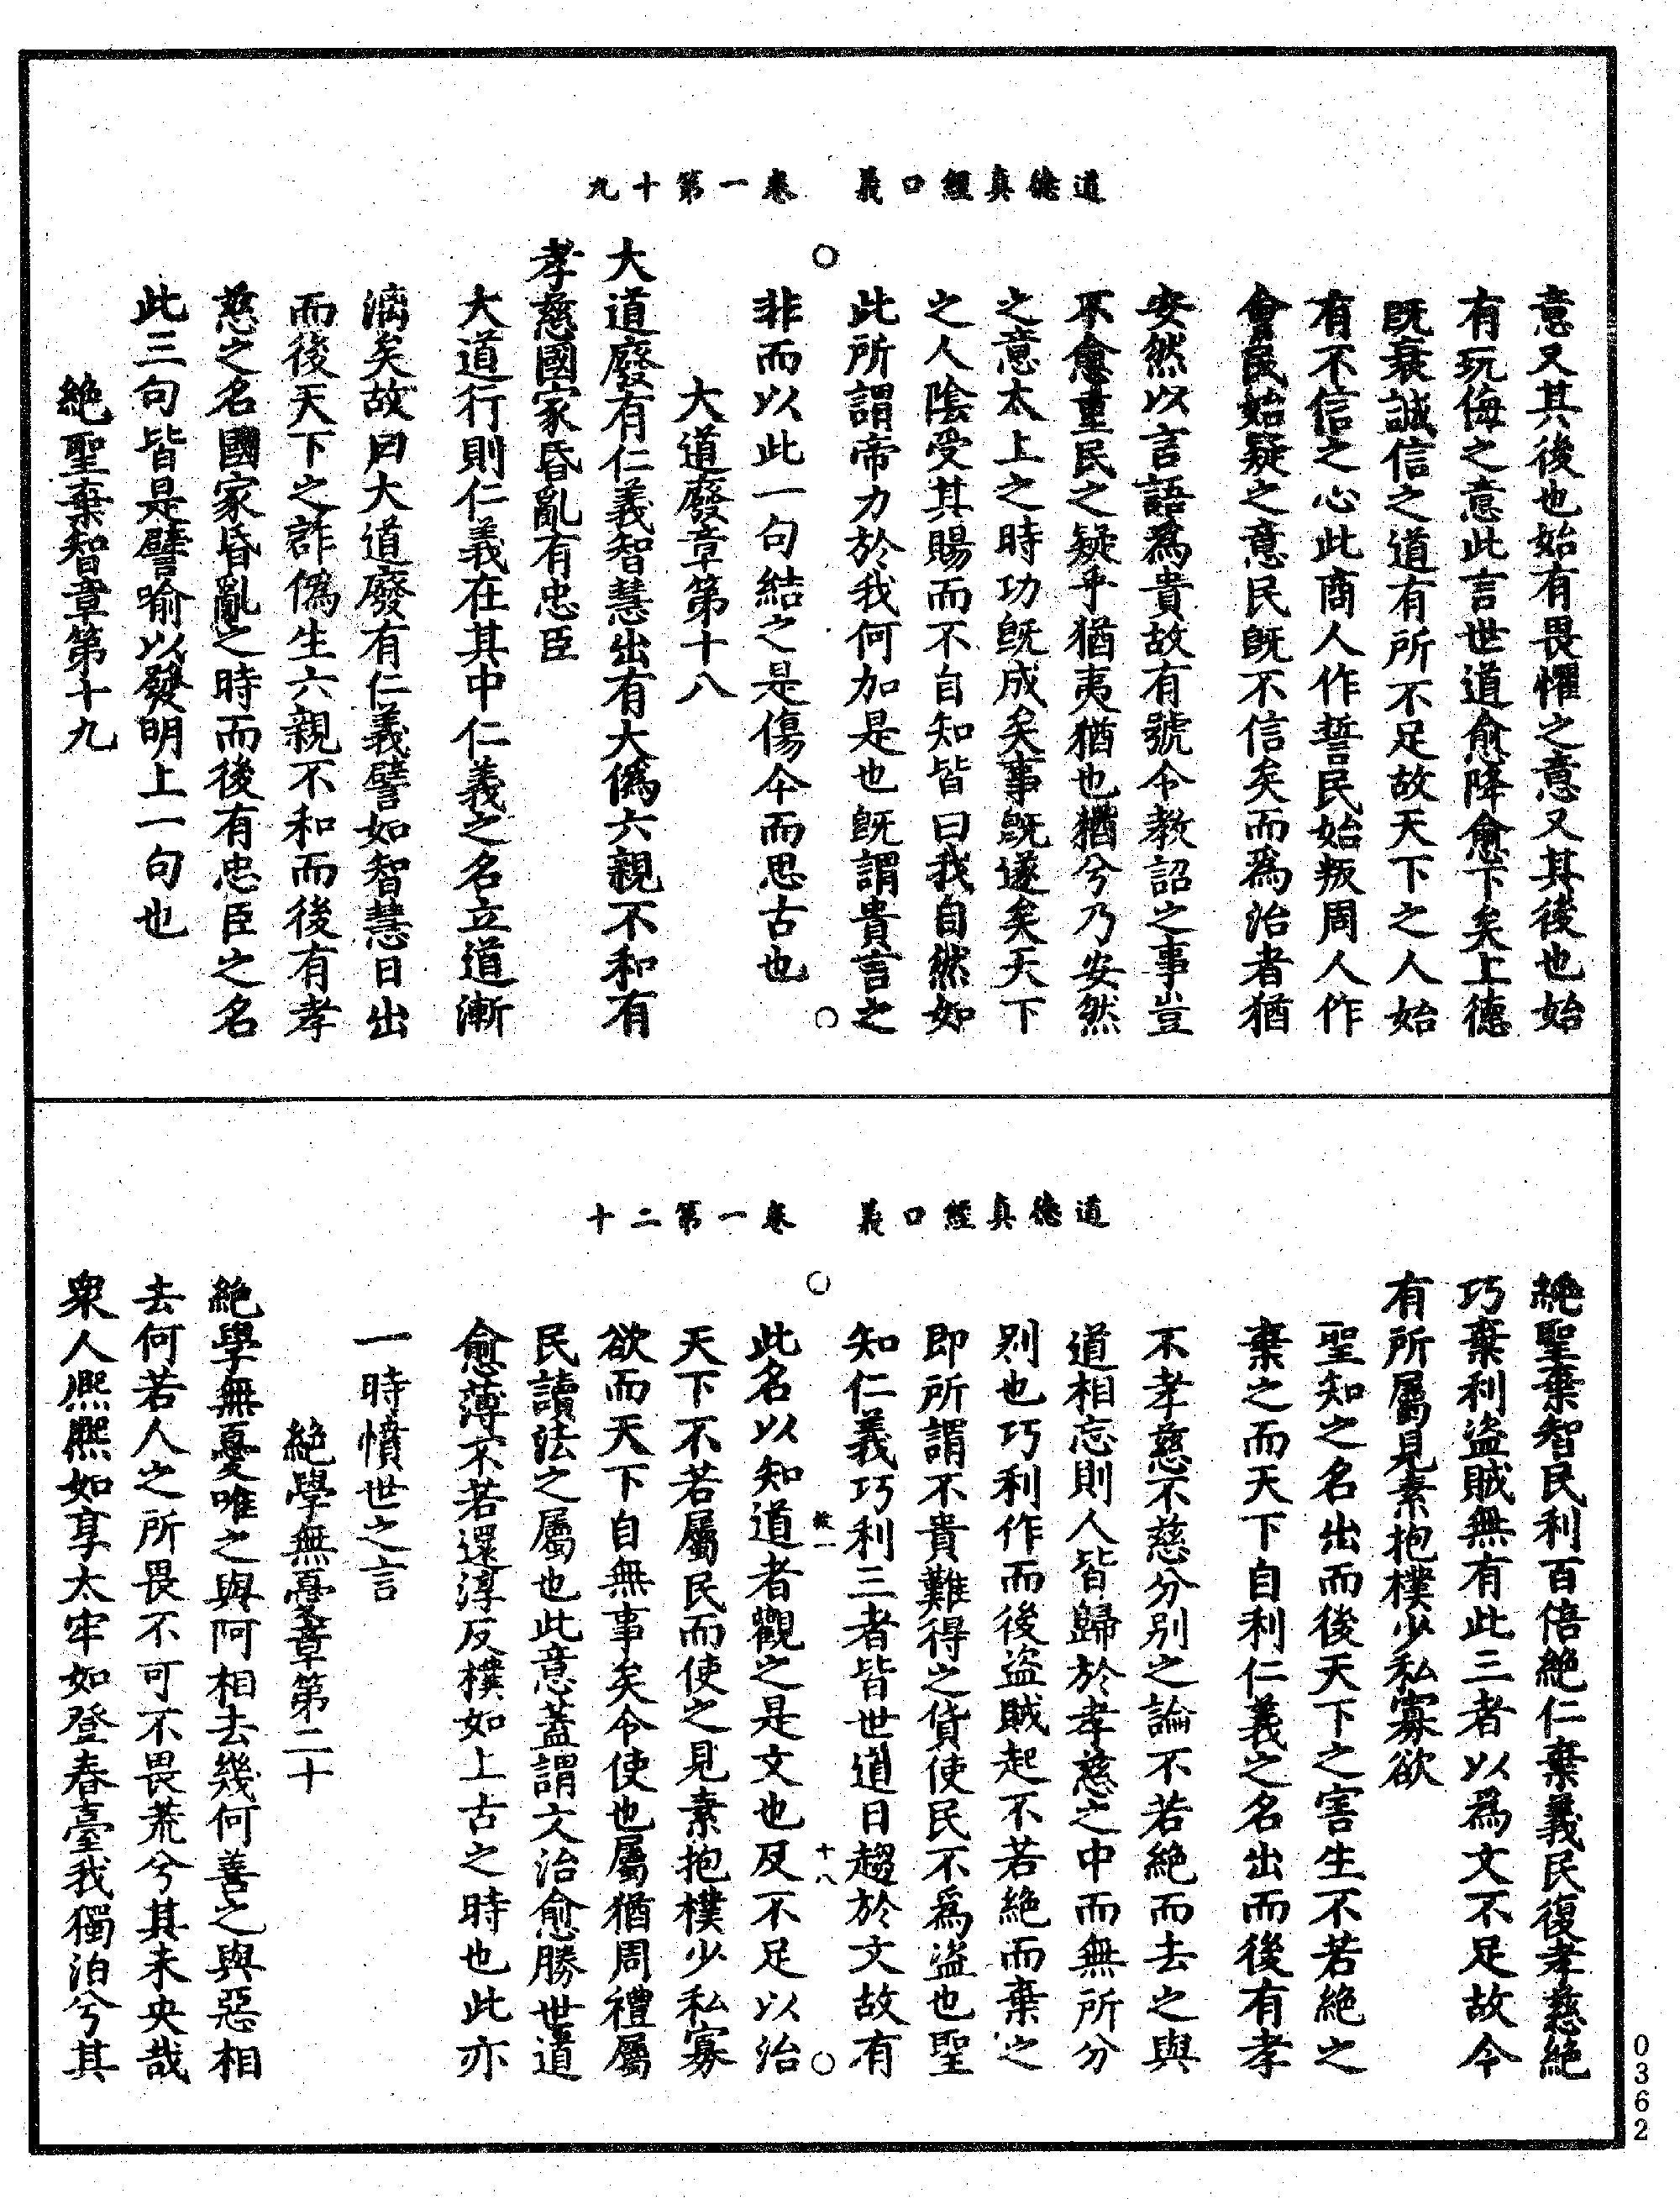 道德真經口義 卷一第十九
意又其後也始有畏懼之意又其後也始
有玩侮之意此言世道愈降愈下矣上德
既衰誠信之道有所不足故天下之人始
有不信之心此商人作誓民始叛周人作
會民始疑之意民既不信矣而為治者猶
安然以言語為貴故有號令教詔之事豈
不愈重民之疑乎猶夷猶也猶兮乃安然
之意太上之時功既成矣事既遂矣天下
之人陰受其賜而不自知皆曰我自然如
此所謂帝力於我何加是也既謂貴言之
非而以此一句結之是傷今而思古也
大道廢章第十八
大道廢有仁義智慧出有大偽六親不和有
孝慈國家昏亂有忠臣
大道行則仁義在其中仁義之名立道漸
漓矣故曰大道廢有仁義譬如智慧日出
而後天下之詐偽生六親不和而後有孝
慈之名國家昏亂之時而後有忠臣之名
此三句皆是譬喻以發明上一句也
絕聖棄智章第十九
道德真經口義 卷一第二十
絕聖棄智民利百倍絕仁棄義民復孝慈絕
巧棄利盜賊無有此三者以為文不足故令
有所屬見素抱樸少私寡欲
聖知之名出而後天下之害生不若絕之
棄之而天下自利仁義之名出而後有孝
不孝慈不慈分別之論不若絕而去之與
道相忘則人皆歸於孝慈之中而無所分
別也巧利作而後盜賊起不若絕而棄之
即所謂不貴難得之貨使民不為盜也聖
知仁義巧利三者皆世道日趨於文故有
十八
此名以知道者觀之是文也反不足以治
天下不若屬民而使之見素抱樸少私寡
欲而天下自無事矣令使也屬猶周禮屬
民讀法之屬也此意蓋謂文治愈勝世道
愈薄不若還淳反樸如上古之時也此亦
一時憤世之言
絕學無憂章第二十
絕學無憂唯之與阿相去幾何善之與惡相
去何若人之所畏不可不畏荒兮其未央哉
眾人熙熙如享太牢如登春臺我獨泊兮其
0362